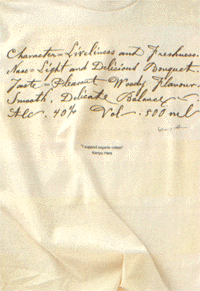 Character = Liveliness and Freshness.
Nose = Light and Delicious Bouquet
Taste = Pleasant Woody Flavour.
Smooth, Delicate Balance
Alc. 40% Vol. 500 ml
"I support organic cotton"
Kenzo Hara